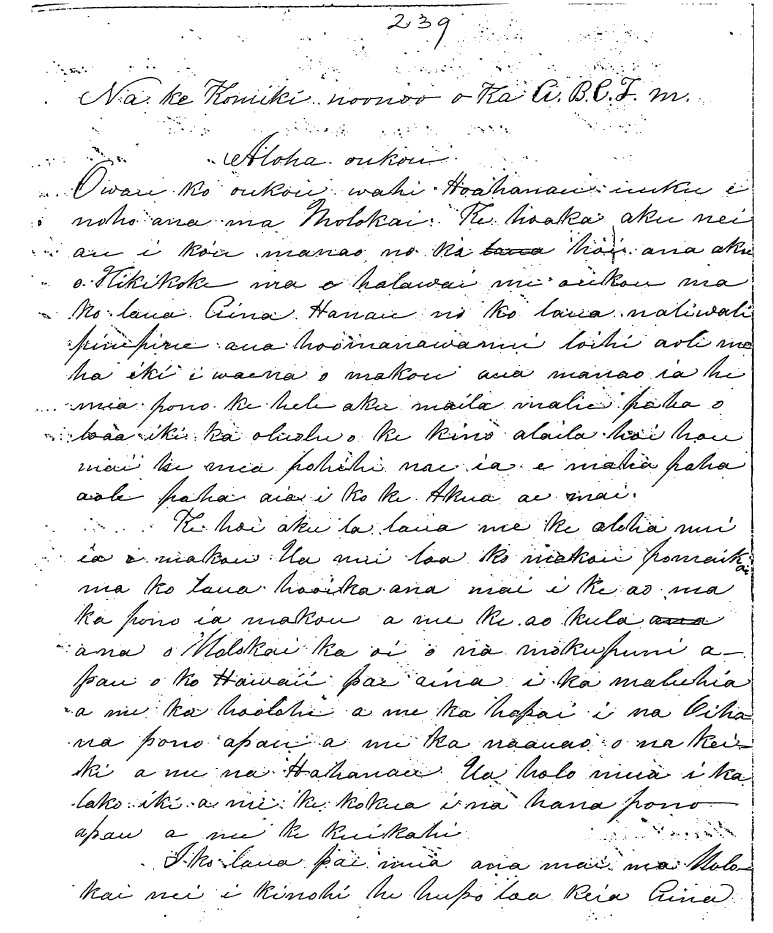 239
Na ke Komiki noonoo o Ka A. B. C. F. M.
Aloha oukou
Owau ko oukou wahi Hoahanau uuku e
noho ana ma Molokai. Ke hoaka aku nei
au i ko'u manao no ka laua hoi ana aku
o Hikikoke ma e halawai me oukou ma
ko laua Aina Hanau no ko laua nawaliwali
pinepine aua hoomanawanui loihi aole ma
ha iki i waena o makou aua manao ia he
mea pono ke hele aku maila malie paha o
loaa iki ka oluolu o ke kino alaila hoi hou
mai he mea pohihi nae ia e malia paha
aole paha aia i ko ke Akua ae mai.
Ke hoi aku la laua me ke aloha nui
ia e makou Ua nui loa ko makou pomaikai
ma ko laua hooika ana mai i ke ao ma
ka pono ia makou a me ke ao kula ana
ana o Molokai ka oi o na mokupuni a-
pau o ko Hawaii pae aina i ka maluhia
a me ka hoolohe a me ka hapai i na Oiha
na pono apau a me ka naauao o na kei-
ki a me na Hahanau Ua holo mua i ka
lako iki a me ke kokua i na hana pono
apau a me ke kuikahi
I ko laua pae mua ana mai ma Molo-
kai nei i kinohi he hupo loa keia Aina